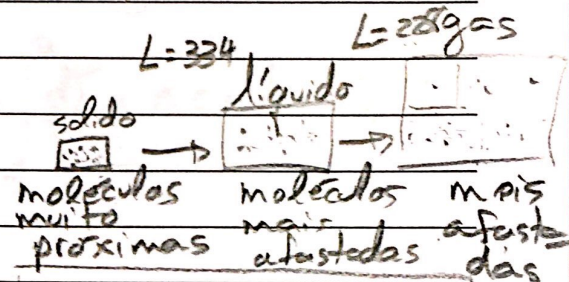 L=334
L= gás
sólido
líquido
moléculas
muito
próximas
moléculas
mais
afastadas
mais
afasta-
das